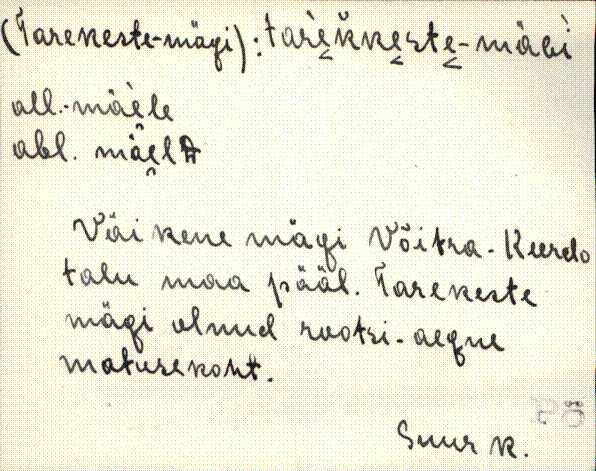 (Tarekeste-mägi): tarèk̆ke̬ste̬-mäGì
all.-mäèle
abl. mäe̬lt
Väikene mägi Võitra-Kurdo
talu maa pääl. Tarekeste
mägi olnud rootsi-aegne
matusekoht.
Suur k.